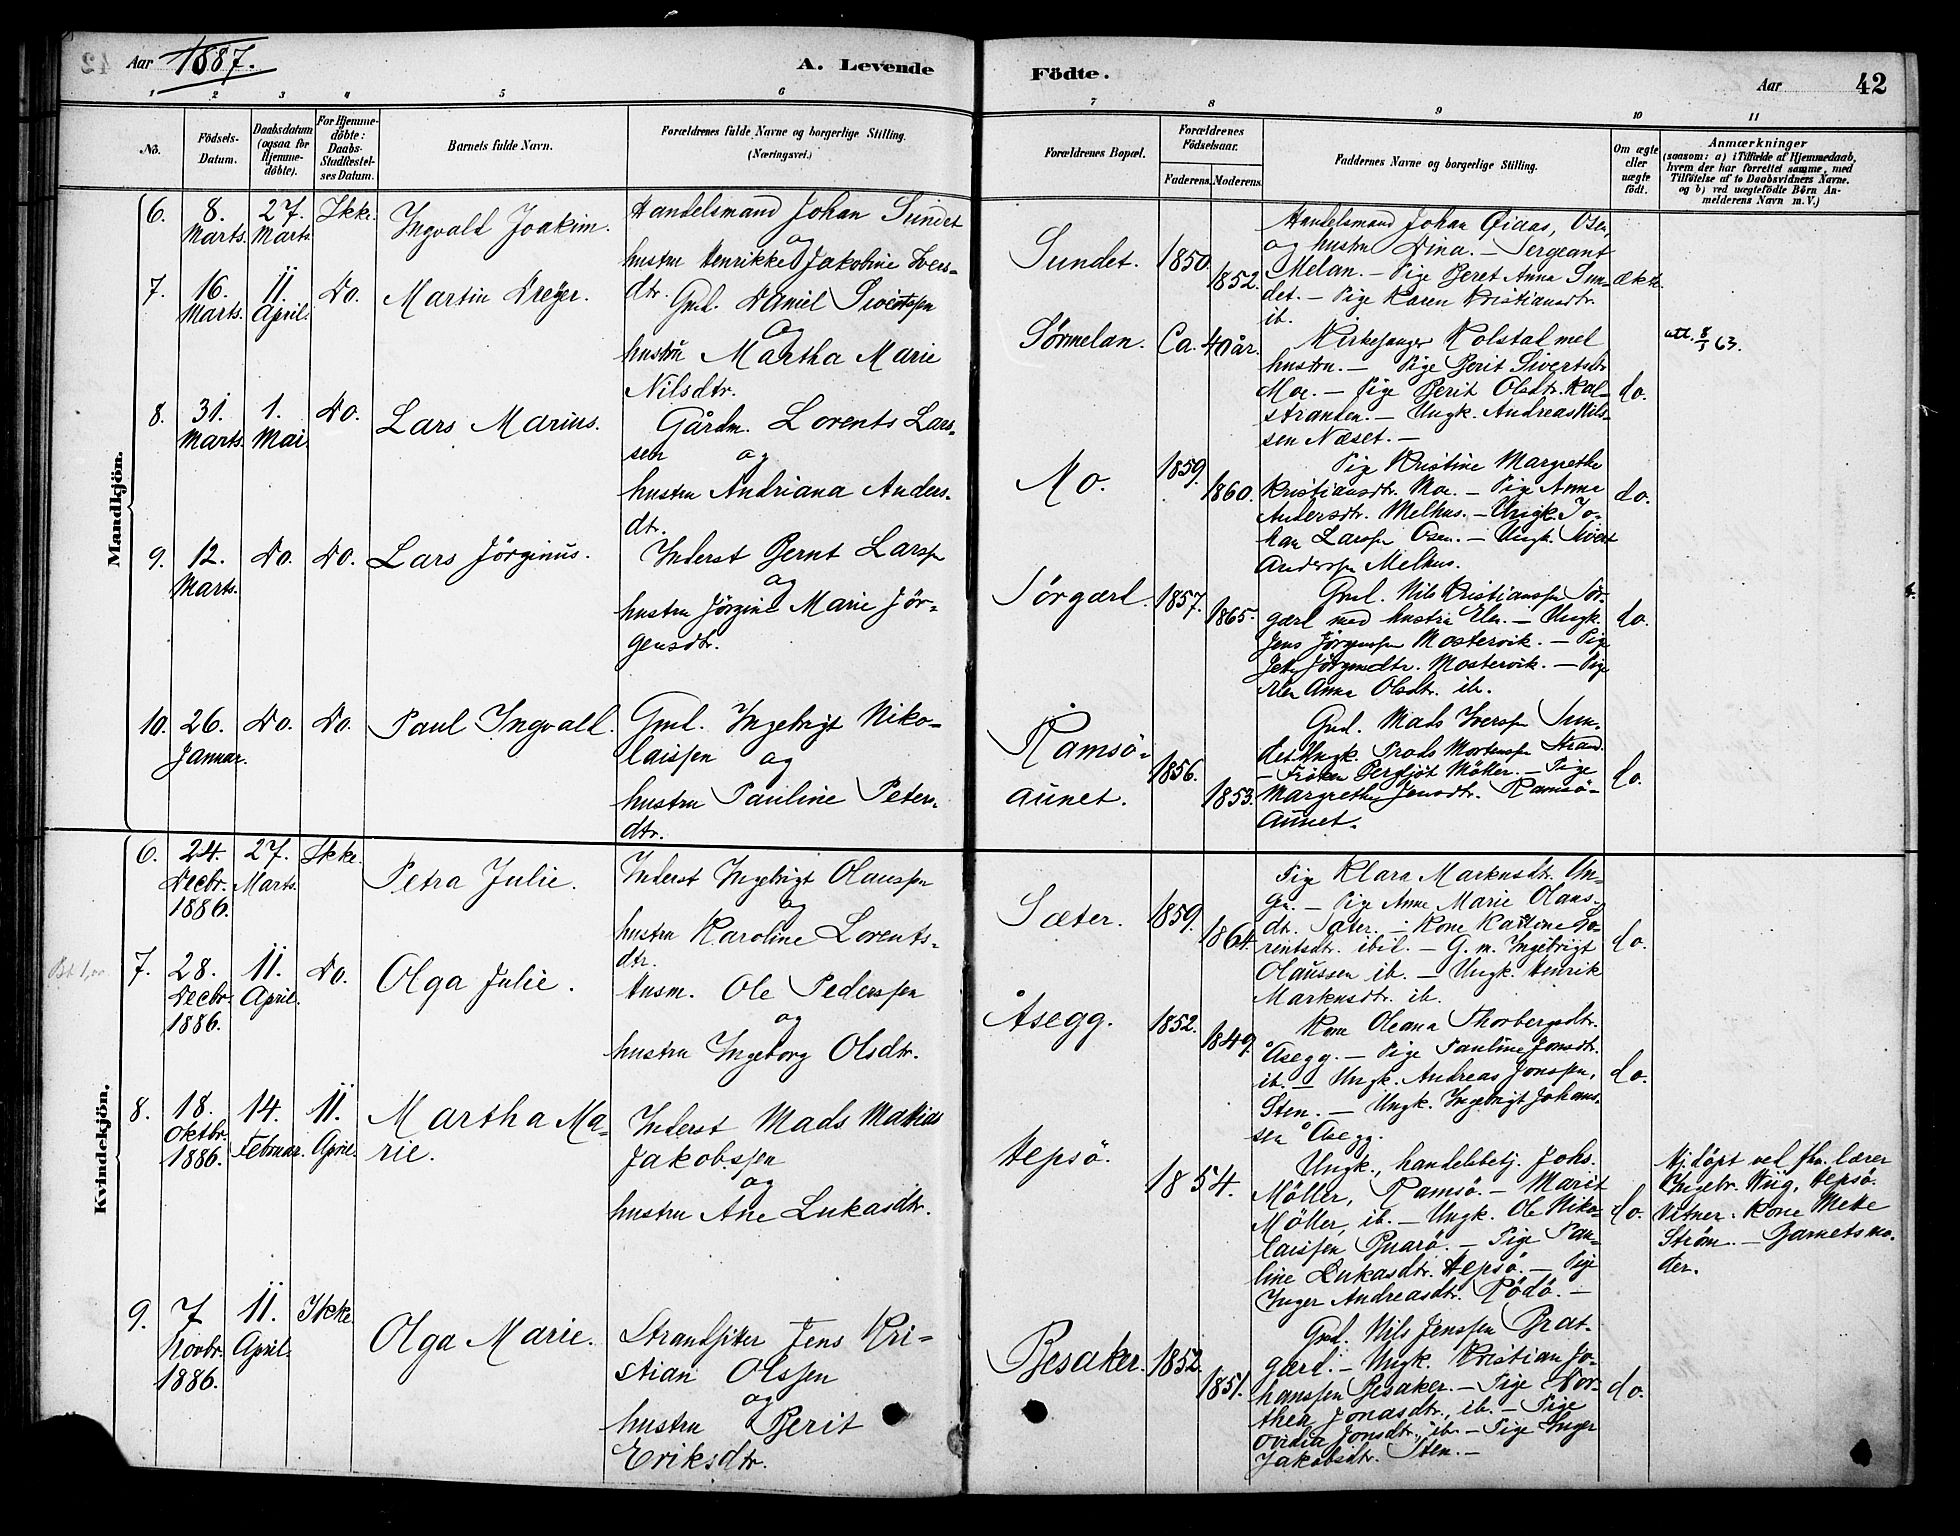 Aar 1887.
A. Levende Födte.
Aar 42
1 2 3 4 5 6 7 8 9 10 11
No.
Födsels-
Datum.
Daabsdatum
(ogsaa för
Hjemme-
döbte).
For Hjemme-
döbte:
Daabs-
Stadfæstel-
ses Datum.
Barnets fulde Navn.
Forældrenes fulde Navne og borgerlige Stilling.
(Næringsvei.)
Forældrenes Bopæl.
Forældrenes
Födselsaar.
Faderens. Moderens.
Faddernes Navne og borgerlige Stilling.
Om ægte
eller
uægte
födt.
Anmærkninger
(saasom: a) i Tilfælde af Hjemmedaab,
hvem der har forrettet samme, med
Tilföielse af to Daabsvidners Navne.
og b) ved uægtefödte Börn An-
melderens Navn m. V.)
Mandkjön.
6. 8. Marts. 27. Marts. Ikke.
Ingvald Joakim.
Handelsmand Johan Sundet
og
hustru Henrikke Jakobine Ivers-
dtr.
Sundet. 1850. 1852.
Handelsmand Johan Øiaas, Osen,
og hustru Dina. — Sergeant
Melan. — Pige Beret Anna Sun-
det. — Pige Karen Kristiansdtr.
ib.
ækte.
7. 16. Marts. 11. April. Do.
Martin Dreyer.
Gmd. Daniel Sivertssen
og
hustru Martha Marie
Nilsdtr.
Sörmelan. Ca. 40 år.
Kirkesanger Kolstad med
hustru. — Pige Berit Sivertsdtr.
Moe. — Pige Berit Olsdtr. Kal-
stranden. — Ungk. Andreas Nils-
sen Næset. —
do.
att. 8/1 63.
8. 31. Marts. 1. Mai. Do.
Lars Marius.
Gårdm. Lorents Lars-
sen og
hustru Andriana Anders-
dtr.
Mo. 1859. 1860.
Pige Kristine Margrethe
Kristiansdtr. Moe. — Pige Anna
Andersdtr. Melhus. — Ungk. Jo-
han Larssen Osen. — Ungk. Sivert
Anderssen Melhus.
do.
9. 12. Marts. Do. Do.
Lars Jörginus.
Inderst Bernt Larssen
og
hustru Jörgine Marie Jör-
gensdtr.
Sörgærd. 1857. 1865.
Gmd. Nils Kristianssen Sör-
gærd med hustru Elen. — Ungk.
Jens Jörgenssen Mostervik. — Pige
Jörgensdtr. Mostervik. — Pige
Anna Olsdtr. ib.
do.
10. 26. Januar. Do. Do.
Paul Ingvald.
Gmd. Ingebrigt Niko-
laissen og
hustru Pauline Peters-
dtr.
Ramsö-
aunet. 1856. 1853.
Gmd. Mads Iverssen Sun-
det. Ungk. Mortenssen Strand.
— Fröken Bergljot Möller. — Pige
Margrethe Jensdtr. Ramsö-
aunet.
do.
Kvindekjön.
6. 24. Decbr. 1886. 27. Marts. Ikke.
Petra Julie.
Inderst Ingebrigt Olaussen
og
hustru Karoline Lorents-
dtr.
Sæter. 1859. 1864.
Pige Klara Markusdtr. Un-
— Pige Anne Marie Olaus-
dtr. Sæter. — Kone Karoline Lo-
rentsdtr. ibid. — G. m. Ingebrigt
Olaussen ib. — Ungk. Henrik
Markusdtr. ib.
do.
7. 28. Decbr. 1886. 11. April. Do.
Olga Julie.
Husm. Ole Pederssen
og
hustru Ingeborg Olsdtr.
Åsegg. 1852. 1849.
Kone Oleana Thorbergsdtr.
Åsegg. — Pige Pauline Jonsdtr.
ib. — Ungk. Andreas Jonssen,
Sten. — Ungk. Ingebrigt Johans-
sen Åsegg.
do.
8. 18. Oktbr. 1886. 14. Februar. 11. April.
Martha Ma-
rie.
Inderst Mads Matias
Jakobssen
og
hustru Ane Lukasdtr.
Hepsö. 1854.
Ungk., handelsbetj. Johs.
Möller, Ramsö. — Marit
Möller, ib. — Ungk. Ole Niko-
laissen Buarö. — Pige Pau-
line Lukasdtr. Hepsö. — Pige
Inger Andreasdtr. Rödö. —
do.
Hj.döpt ved lærer
Ingebr. Hepsö.
Vitner. Kone Mette
Ström. — Barnets mo-
der.
9. 7 Novbr. 1886. 11. April. Ikke.
Olga Marie.
Strandsitter Jens Kri-
stian Olssen
og
hustru Berit
Eriksdtr.
Besaker. 1852. 1851.
Gmd. Nils Jenssen Brat-
gærd. — Ungk. Kristian Jo-
hanssen Besaker. — Pige Dor-
thea Jonasdtr., ib. — Pige
Ovidia Jonsdtr., ib. — Pige Inger
Jakobsdtr. Sten. —
do.